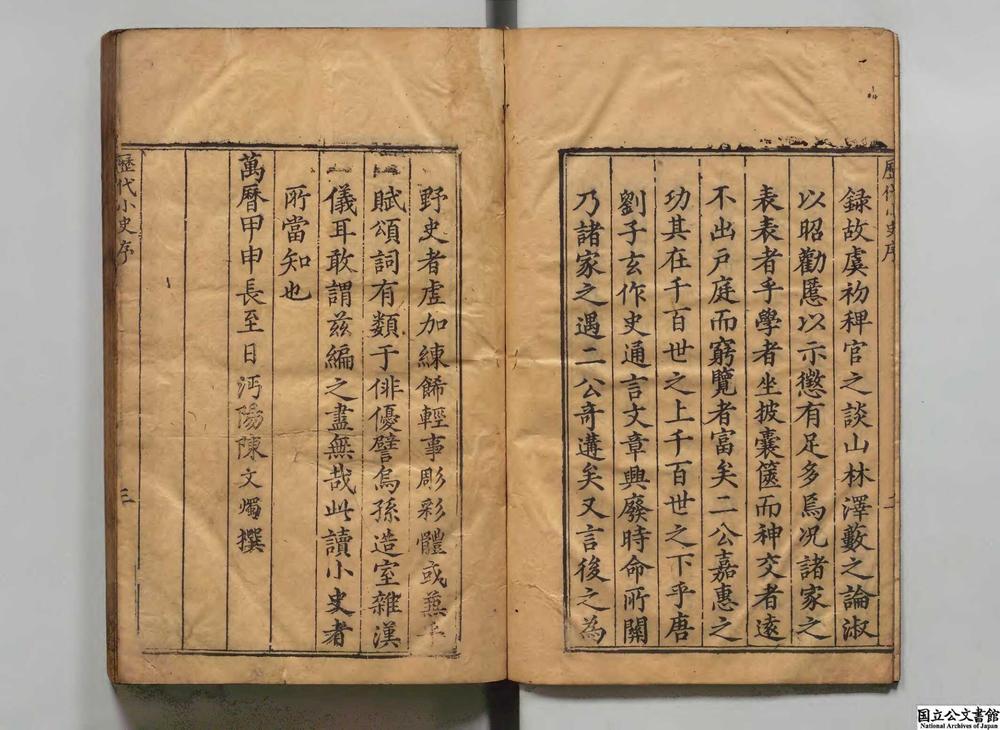 歷代小史序
録故虞初稗官之談山林澤藪之論淑
以昭勸慝以示懲有足多焉况諸家之
表表者乎學者坐披囊篋而神交者遠
不出戸庭而窮覽者富矣二公嘉惠之
功其在千百世之上千百世之下乎唐
劉子玄作史通言文章興廢時命所關
乃諸家之遇二公奇遘矣又言後之為
二
野史者虚加練餙輕事彫彩體或兼乎
賦頌詞有類于俳優譬烏孫造室雜漢
儀耳敢謂兹編之盡無哉此讀小史者
所當知也
萬曆甲申長至日沔陽陳文燭撰
歷代小史序
三
国立公文書館
National Archives of Japan